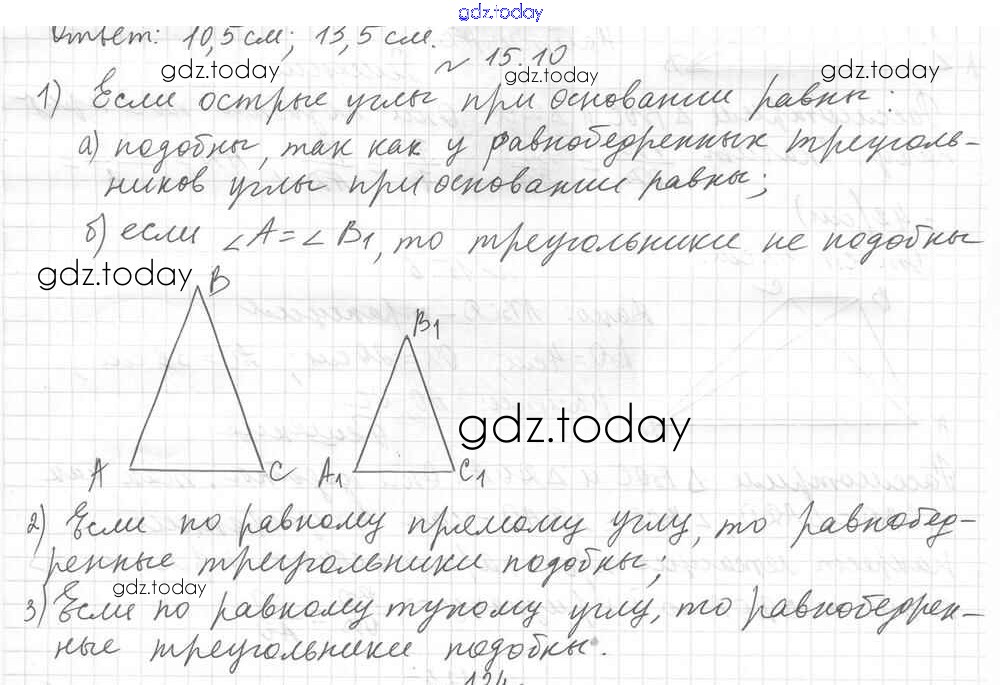 gdz.today
Ответ: 10,5 см; 13,5 см.
№ 15.10
gdz.today gdz.today gdz.today
1) Если острые углы при основании равны:
а) подобны, так как у равнобедренных треуголь-
ников углы при основании равны;
б) если ∠A = ∠B1, то треугольники не подобны
gdz.today
B
B1
gdz.today
A C A1 C1
2) Если по равному прямому углу, то равнобед-
ренные треугольники подобны;
gdz.today
3) Если по равному тупому углу, то равнобедрен-
ные треугольники подобны.
124